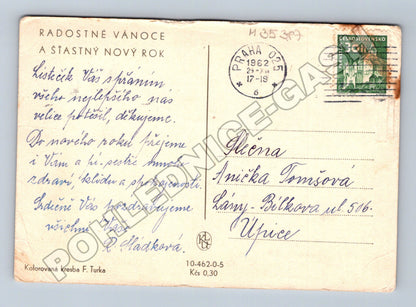 RADOSTNÉ VÁNOCE
A ŠŤASTNÝ NOVÝ ROK
Lísteček Váš s přáním
všeho nejlepšího nás
velice potěšil, děkujeme.
Do nového roku přejeme
i Vám a sl. sestře mnoho
zdraví, klidu a spokojenosti.
Srdečně Vás pozdravujeme
všichni Vaši
R. Hádková.
Kolorovaná kresba F. Turka
10-462-0-5
Kčs 0,30
PRAHA 025
1962
17-19
6
ČESKOSLOVENSKO
Slečna
Anička Tomšová
Lány-Bílkova ul. 506.
Úpice
POHLEDNICE-GASL